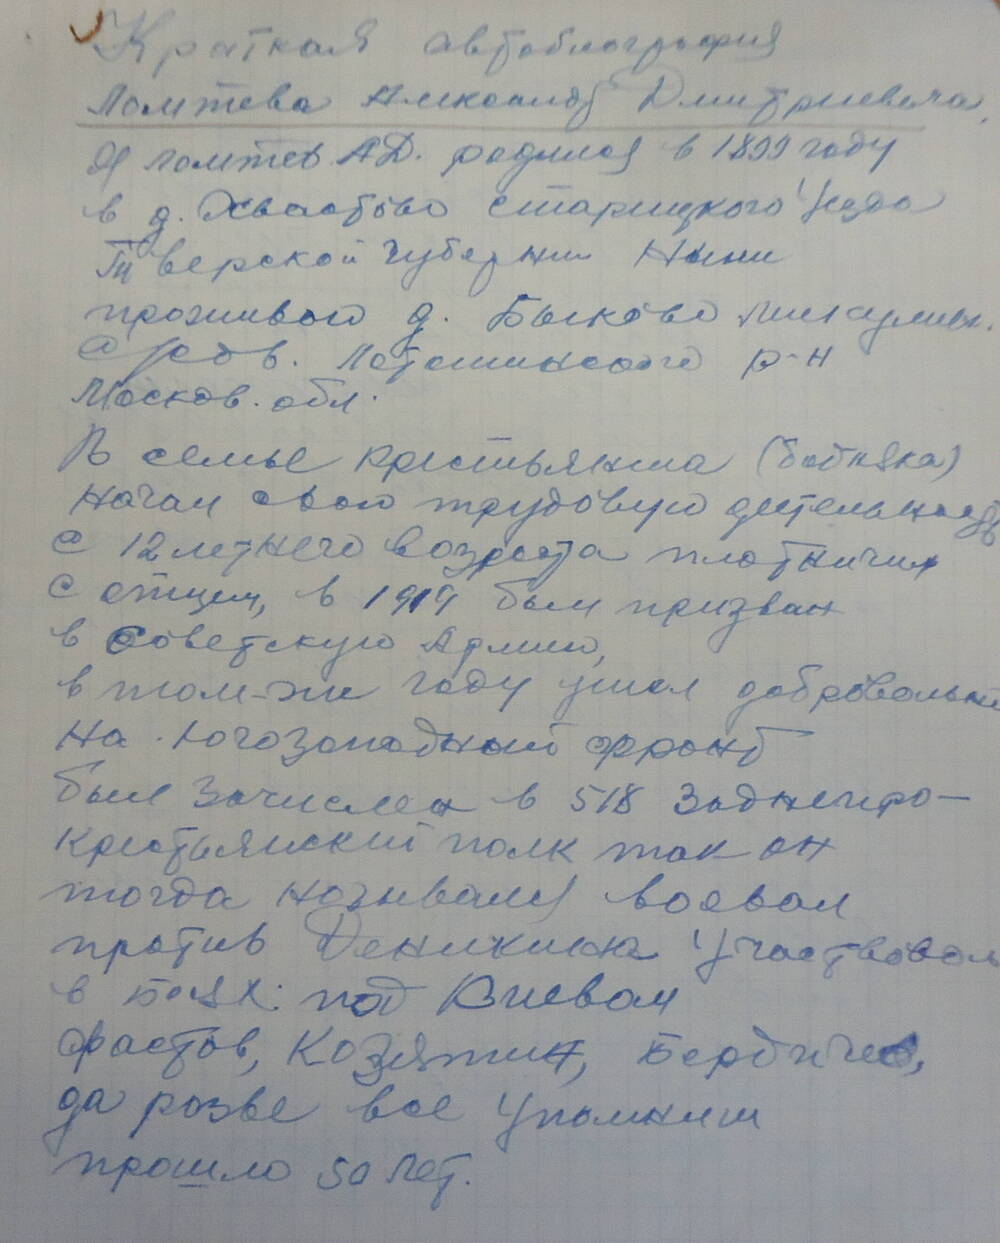 Краткая автобиография
Ломтева Александр Дмитриевича,
Я Ломтев А.Д. родился в 1899 году
в д. Хвастово старицкого уезда
Тверской губернии Ныни
проживаю д. Быково Микулин.
с/сов. Лотошинского р-н
Москов. обл.
В семье крестьянина (бедняка)
Начал свою трудовую деятельность
с 12 летнего возраста плотничил
с отцем, в 1919 был призван
в Советскую Армию,
в том-же году ушол добровольно
на Югозападный фронт
был зачислен в 518 Заднепро-
крестьянский полк так он
тогда назывался воевал
против Деникина Участвовал
в боях: под Киевом
Фастов, Козятин, Бердичев,
да розве все упомниш
прошло 50 лет.